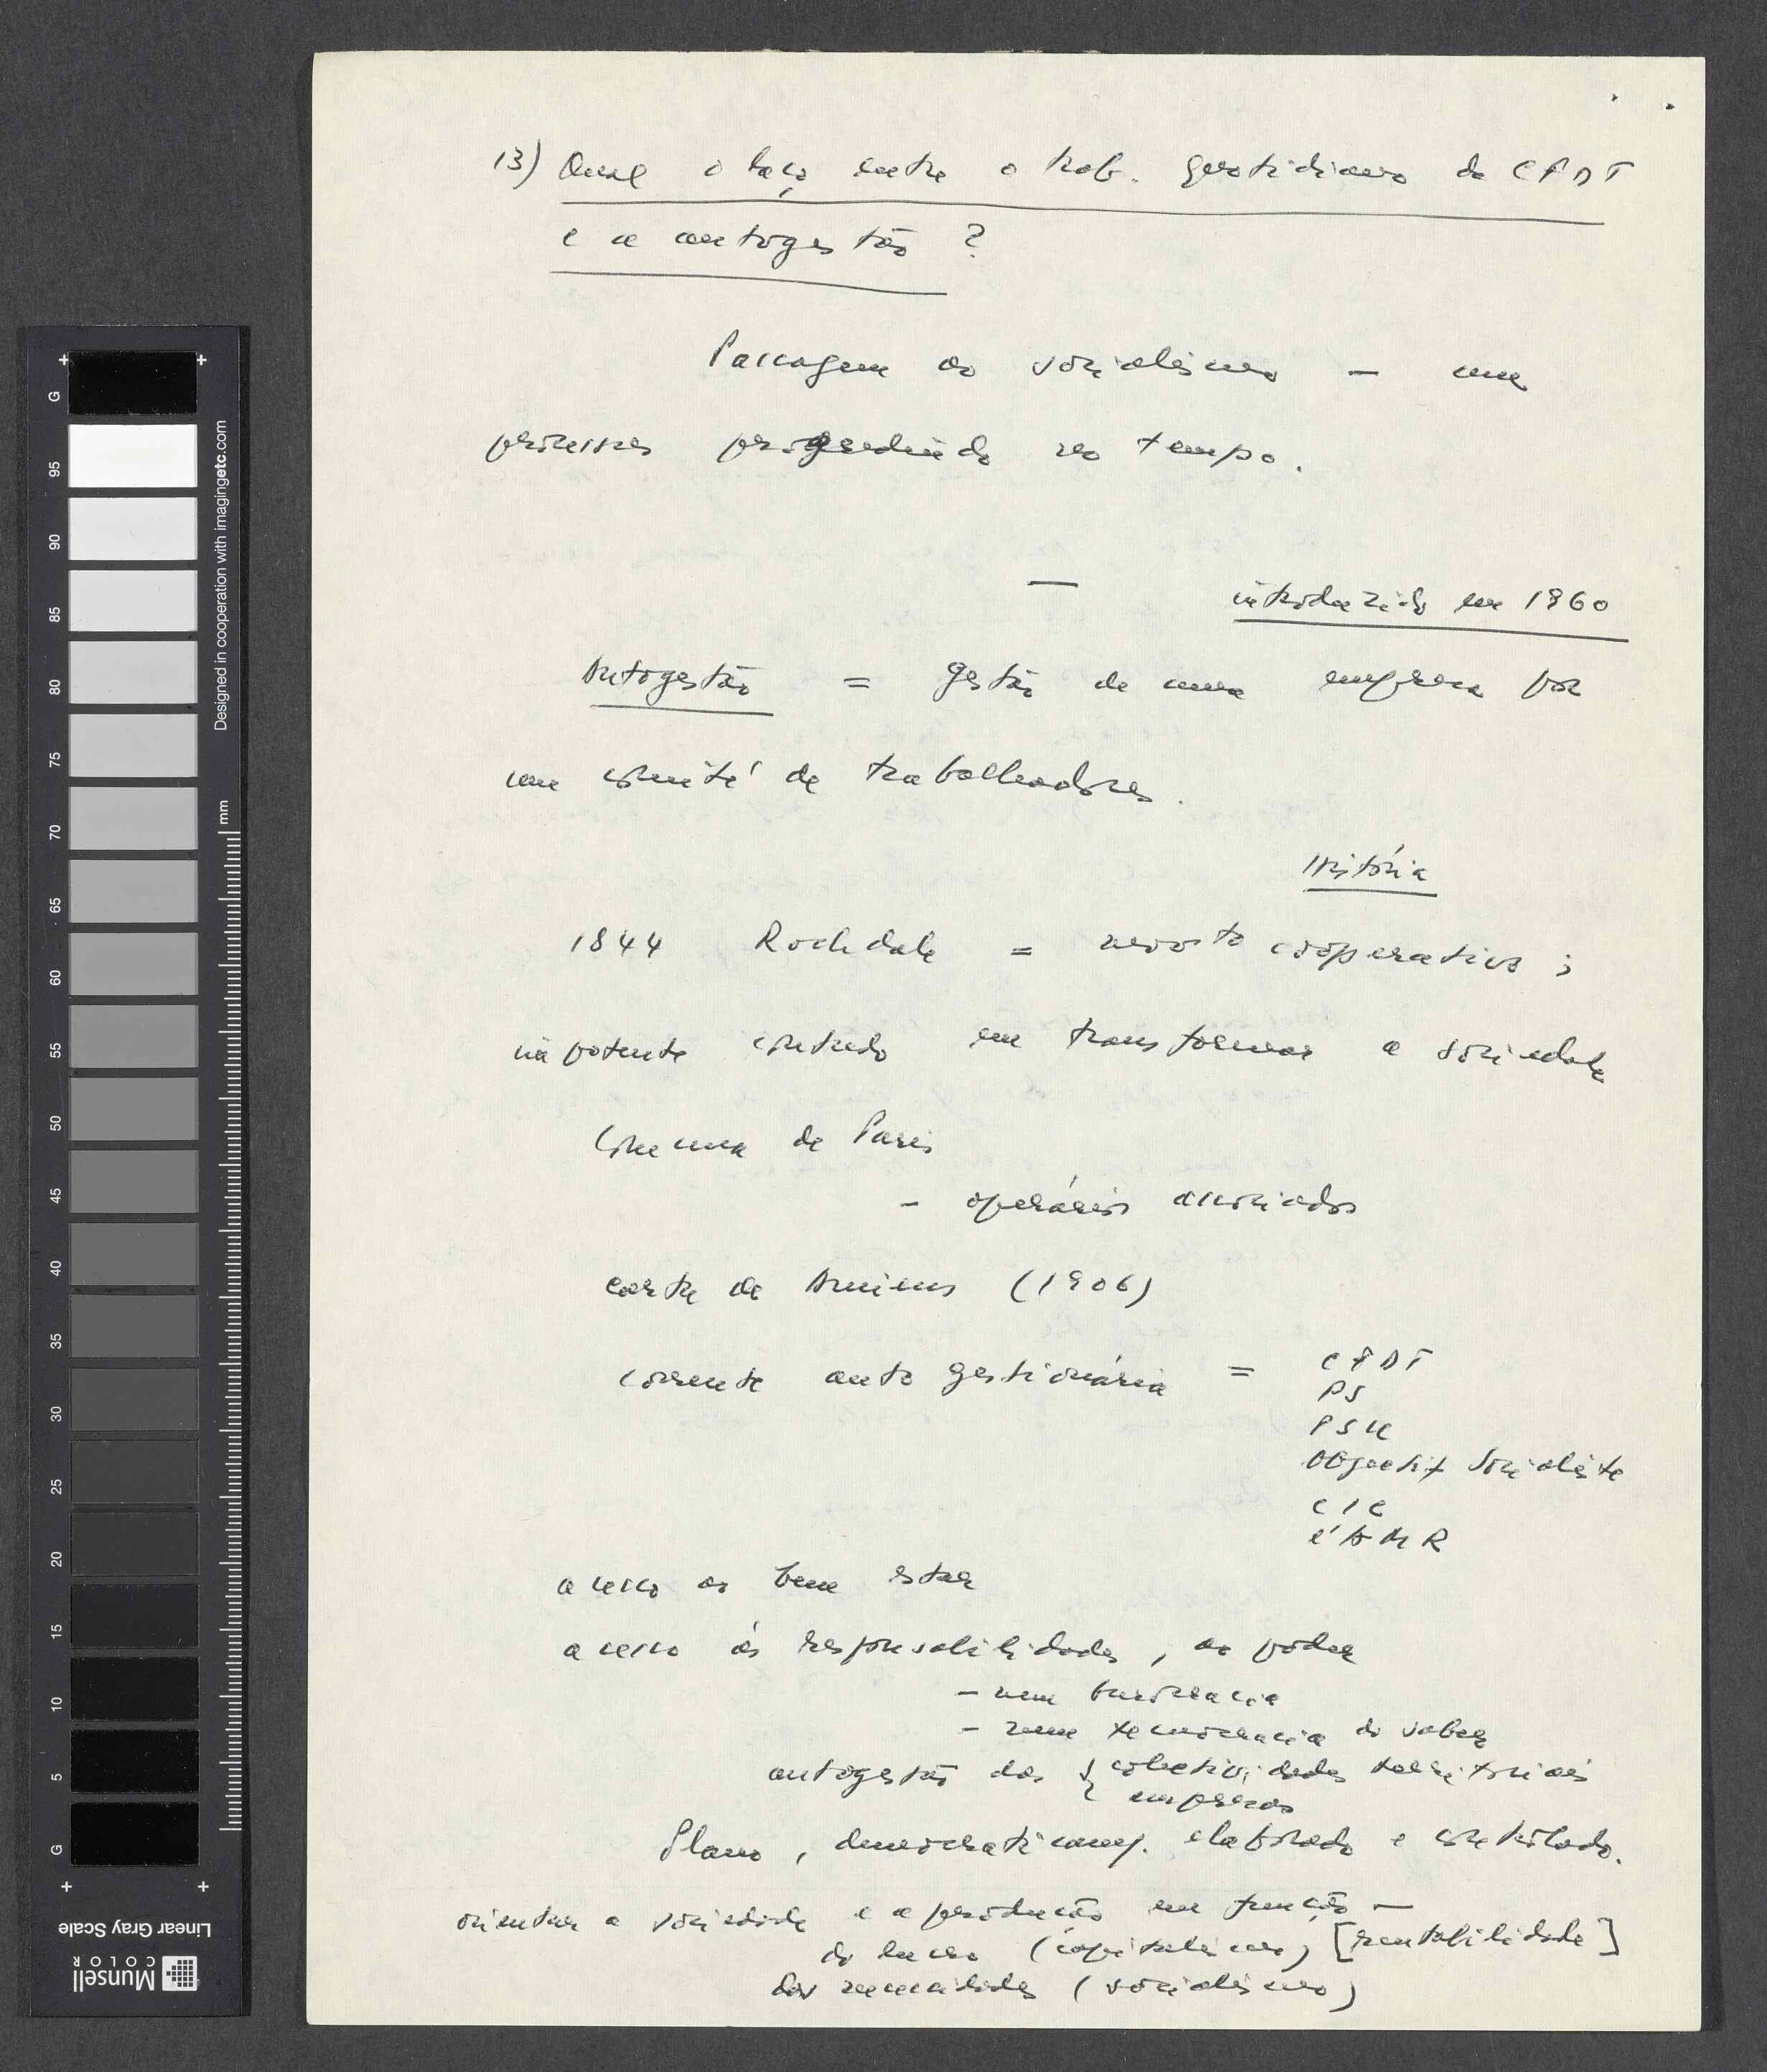 13) Qual o laço entre o trab. quotidiano da CFDT
e a autogestão ?
Passagem ao socialismo — um
processo progredindo no tempo.
—
introduzido em 1960
Autogestão = gestão de uma empresa por
um comité de trabalhadores.
História
1844 Rochdale = movto cooperativo ;
impotente contudo em transformar a sociedade
Comuna de Paris
- operários associados
carta de Amiens (1906)
corrente autogestionária = CFDT
PS
PSU
Objectif Socialiste
CIC
l'AMR
acesso ao bem estar
acesso às responsabilidades, ao poder
- nem burocracia
- nem tecnocracia do saber
autogestão das { colectividades territoriais
empresas
Plano, democraticam. elaborado e controlado.
orientar a sociedade e a produção em função —
do lucro (capitalismo) [rentabilidade]
das necessidades (socialismo)
G
95
90
85
80
75
70
65
60
55
50
45
40
35
30
25
20
15
10
5
G
Designed in cooperation with imagingetc.com
mm
Linear Gray Scale
Munsell
COLOR